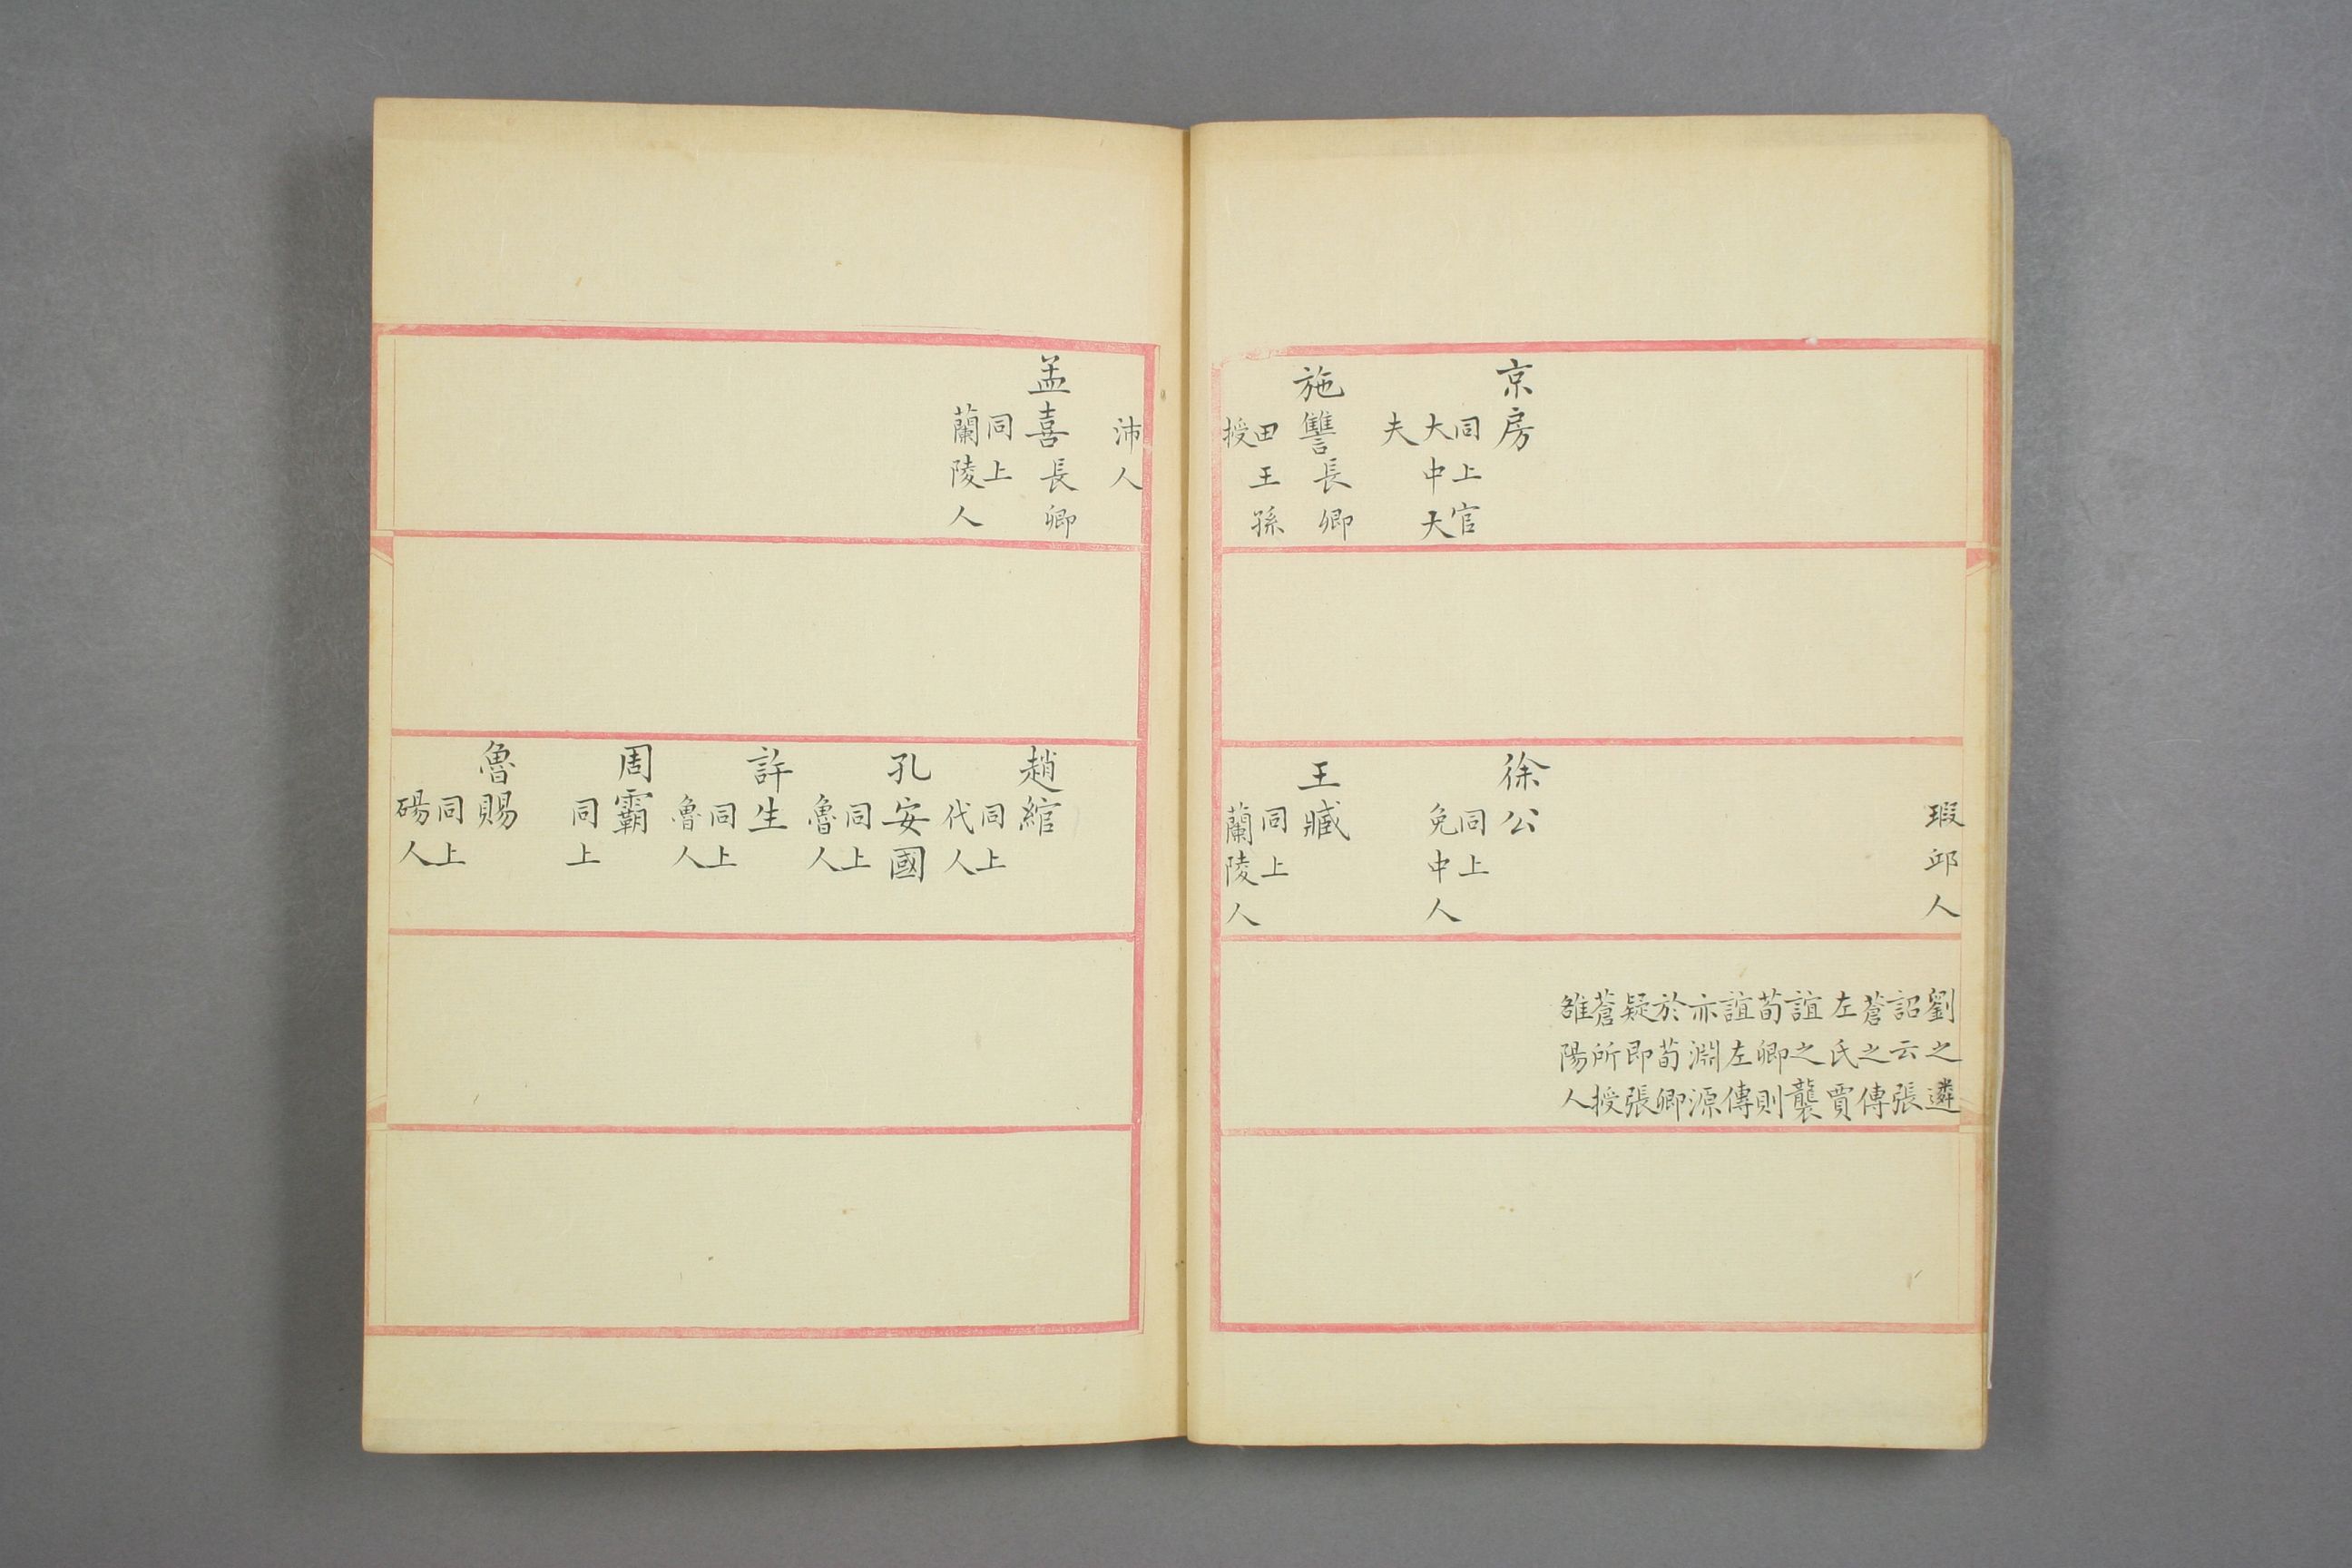 京房
同上官
大中大
夫
施讐長卿
田王孫
授
瑕邱人
徐公
同上
免中人
王臧
同上
蘭陵人
劉之遴
詔云張
蒼之傳
左氏賈
誼之襲
荀卿則
誼左傳
亦淵源
於荀卿
疑即張
蒼所授
雒陽人
沛人
孟喜長卿
同上
蘭陵人
趙綰
同上
代人
孔安國
同上
魯人
許生
同上
魯人
周霸
同上
魯賜
同上
碭人